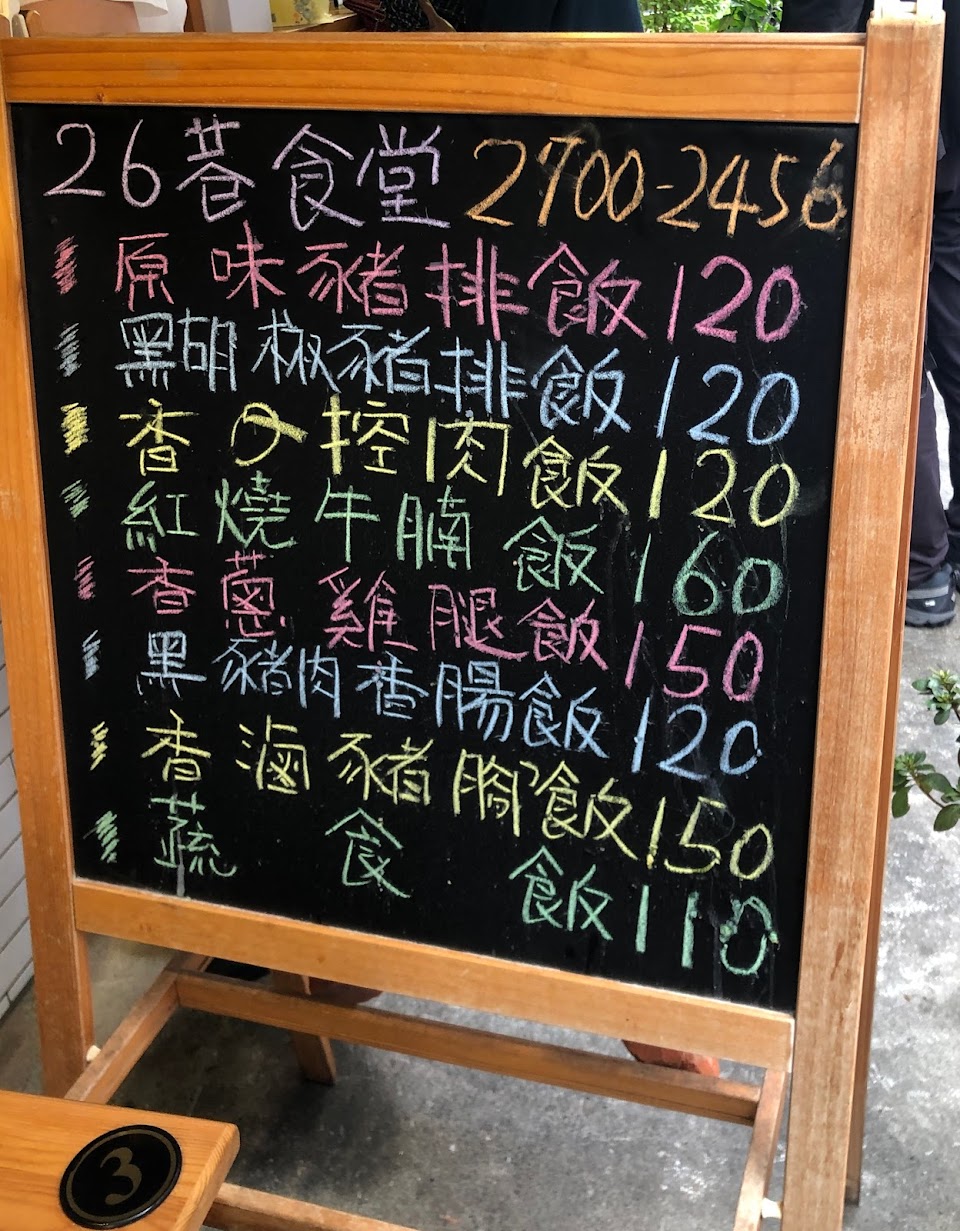 26巷食堂 2700-2456
原味豬排飯 120
黑胡椒豬排飯 120
香Q控肉飯 120
紅燒牛腩飯 160
香蔥雞腿飯 150
黑豬肉香腸飯 120
香滷豬腳飯 150
蔬食飯 110
3